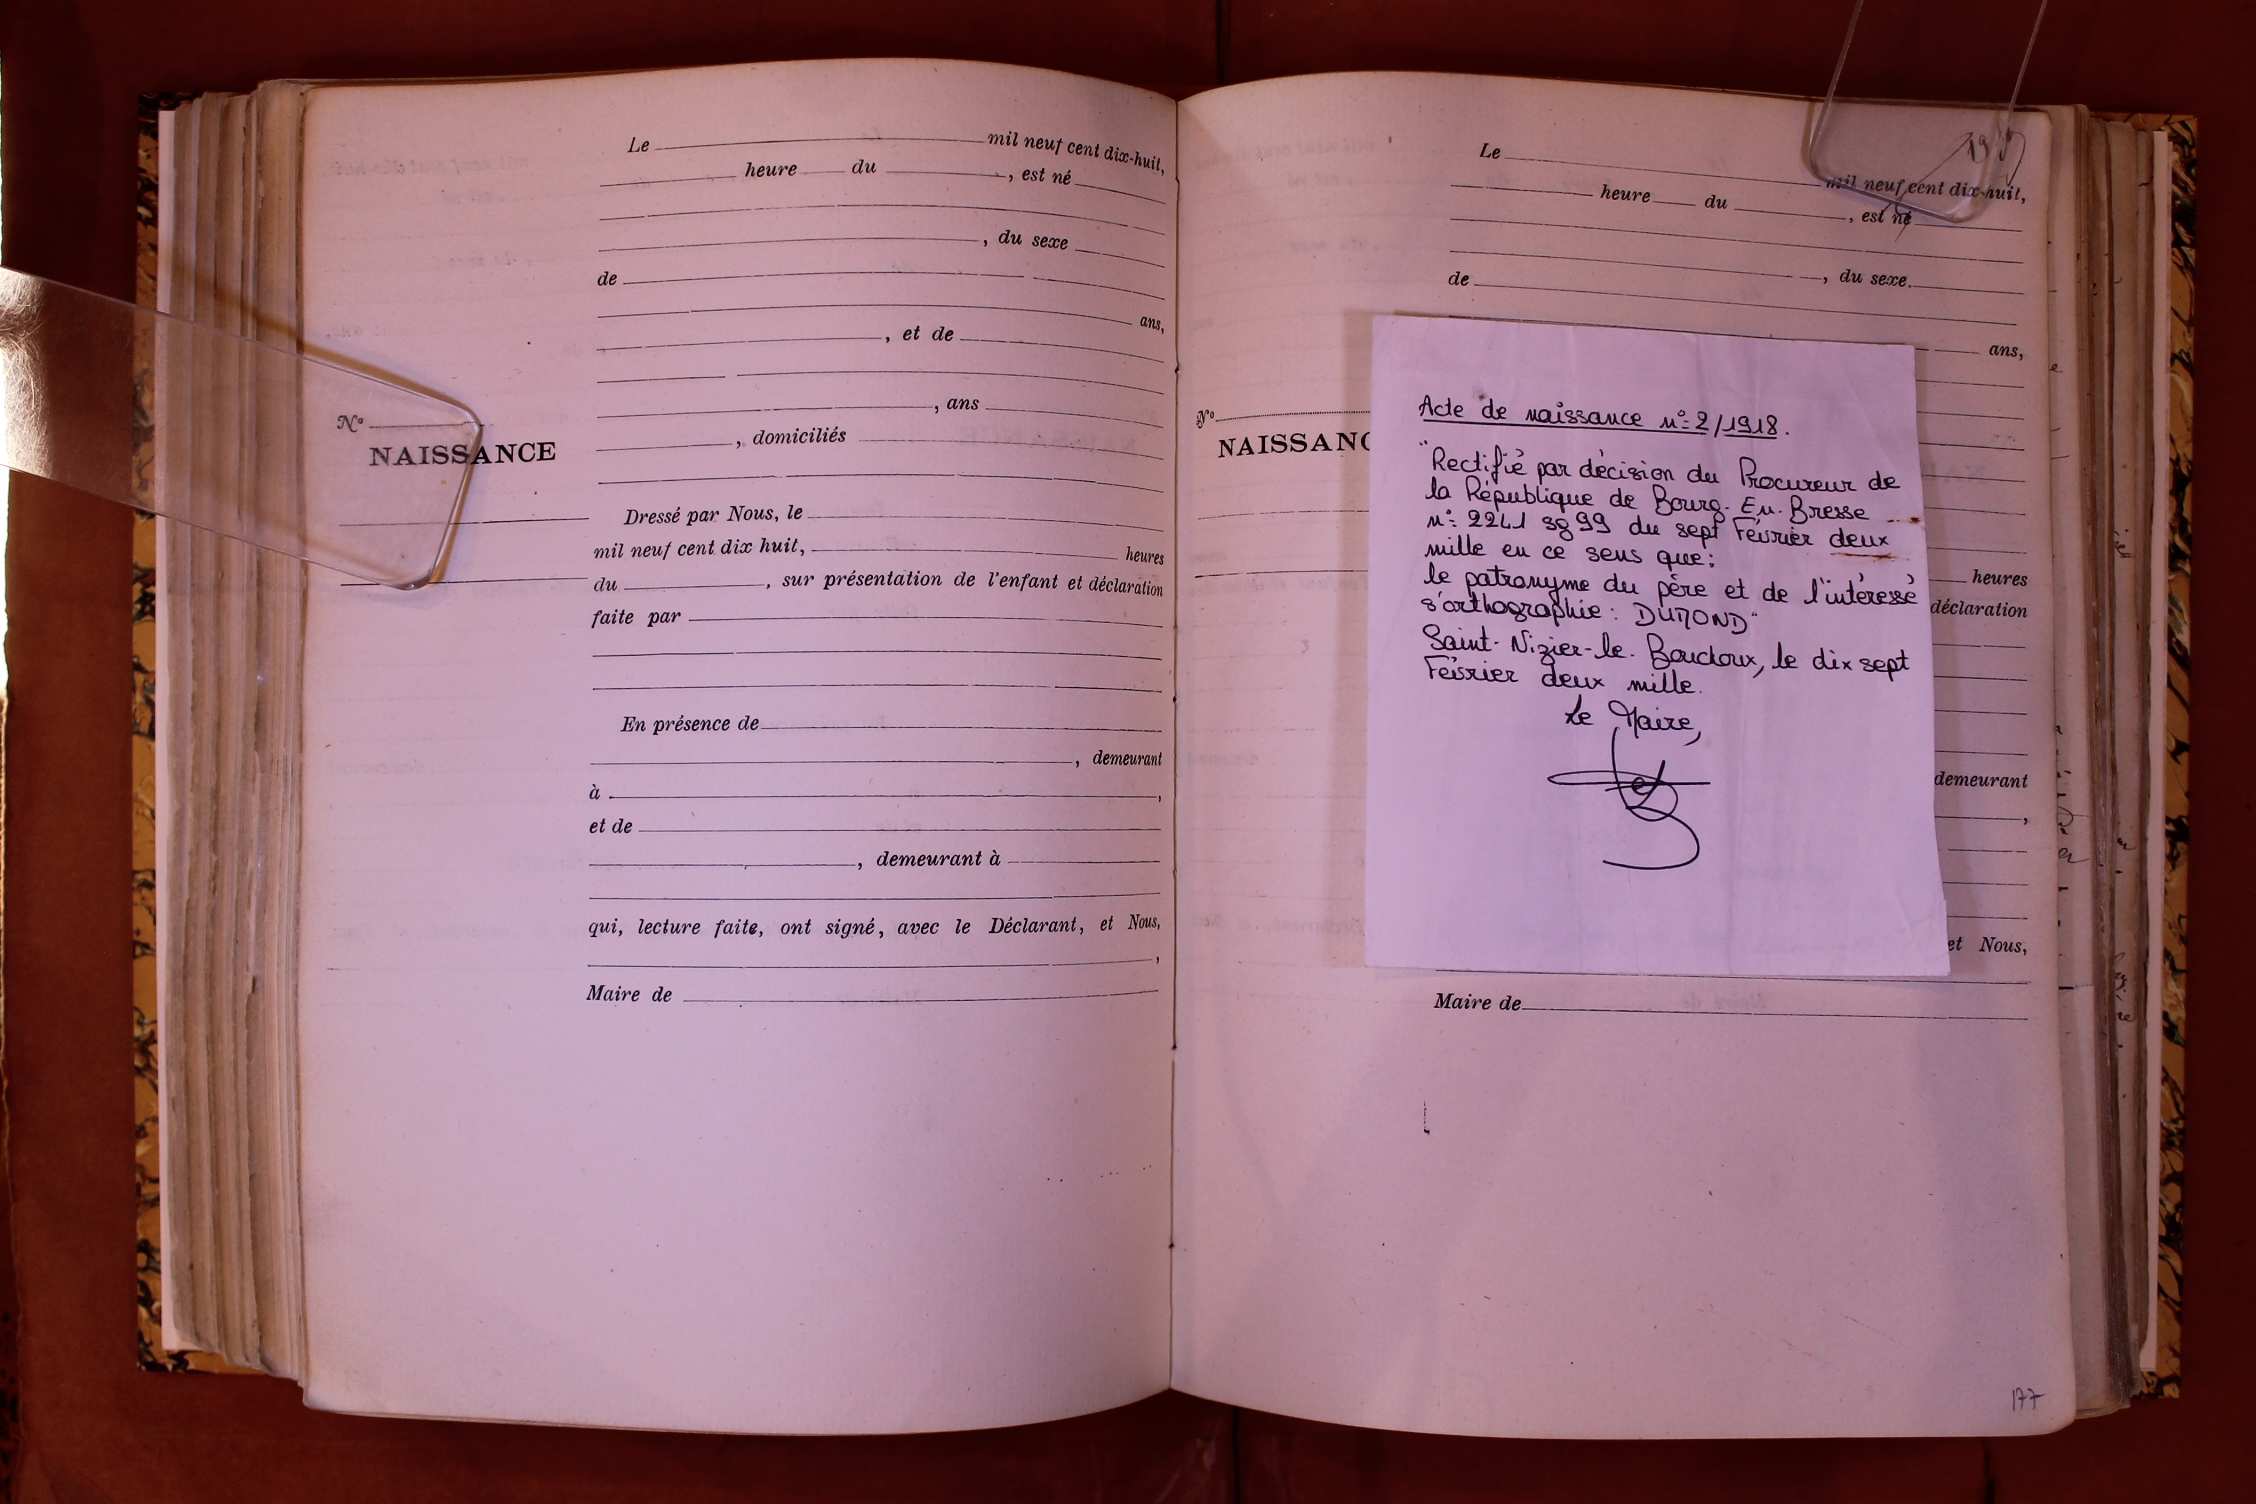 Le mil neuf cent dix-huit,
heure du , est né
, du sexe
de
ans,
, et de
, ans
, domiciliés
Nº
NAISSANCE
Dressé par Nous, le
mil neuf cent dix huit, heures
du , sur présentation de l'enfant et déclaration
faite par
En présence de
, demeurant
à ,
et de
, demeurant à
qui, lecture faite, ont signé, avec le Déclarant, et Nous,
,
Maire de
Le mil neuf cent dix-huit,
heure du , est né
, du sexe
de
ans,
Nº
NAISSANC
Acte de naissance nº 2/1918.
"Rectifié par décision du Procureur de
la République de Bourg-En-Bresse
nº 2241 sg 99 du sept Février deux
mille en ce sens que:
le patronyme du père et de l'intéressé
s'orthographie: DUMOND"
Saint-Nizier-le-Bouchoux, le dix sept
Février deux mille.
Le Maire,
heures
déclaration
demeurant
,
et Nous,
Maire de
177